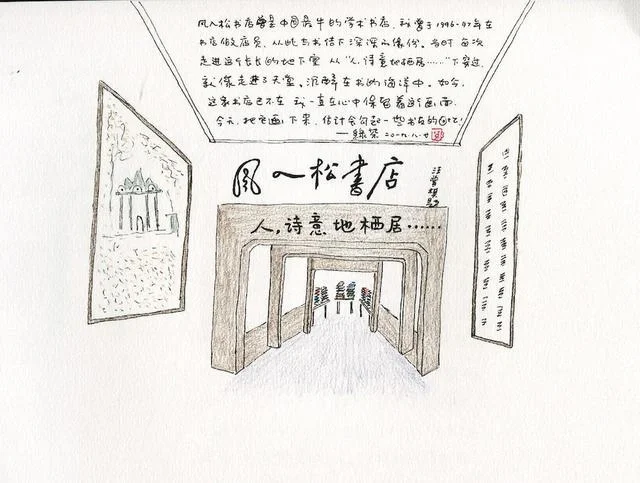 风入松书店曾是中国最牛的学术书店,我曾于1996-97年在
书店做店员,从此与书结下深深的缘份。当时每次
走进这个长长的地下室 从“人,诗意地栖居……”下穿过,
就像走进了天堂。沉醉在书的海洋中。如今,
这家书店已不在 我一直在心中保留着这个画面.
今天,把它画下来,估计会勾起一些书友的回忆.
——绿茶
風入松書店
汪曾祺题
人,诗意地栖居……